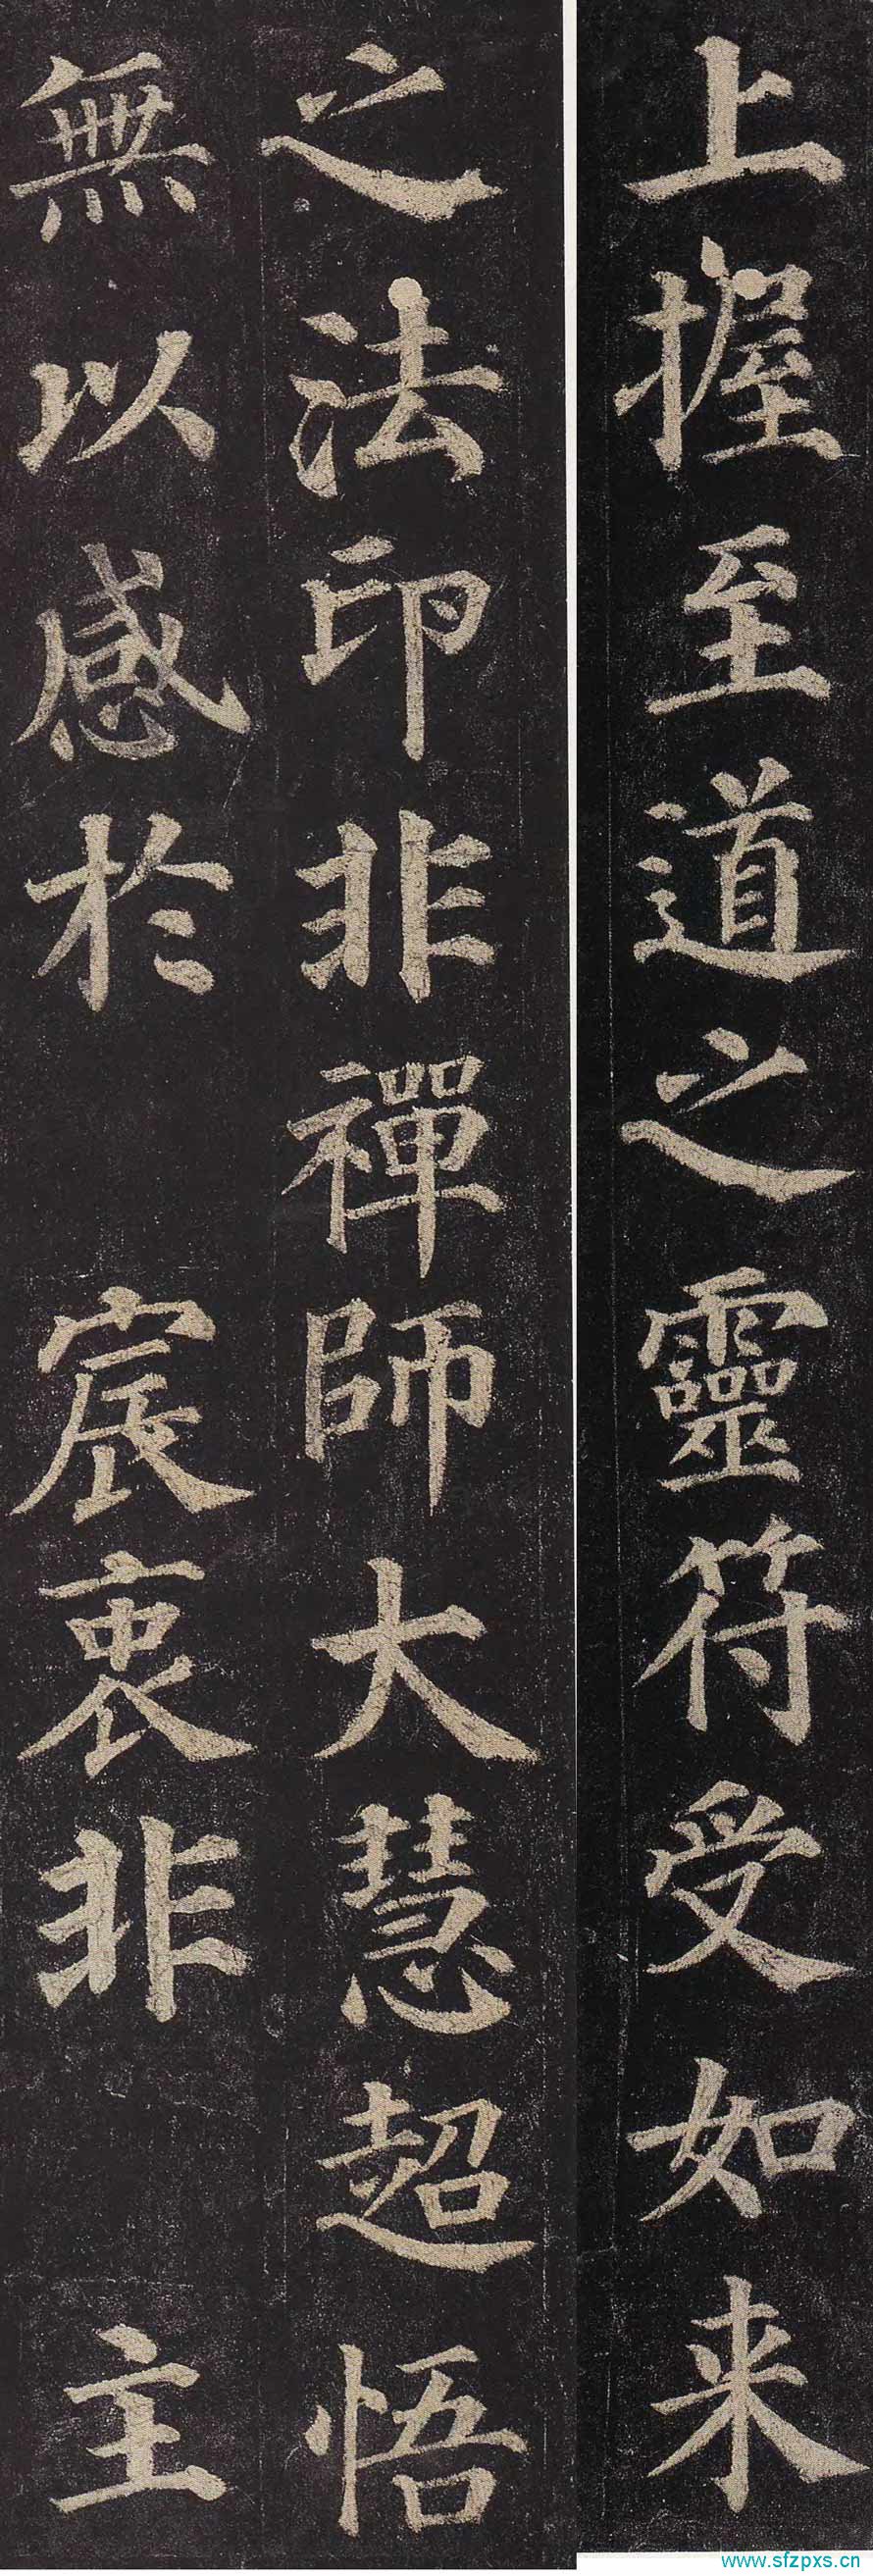 上握至道之靈符受如来
之法印非禪師大慧超悟
無以感於宸衷非主
www.sfzpxs.cn